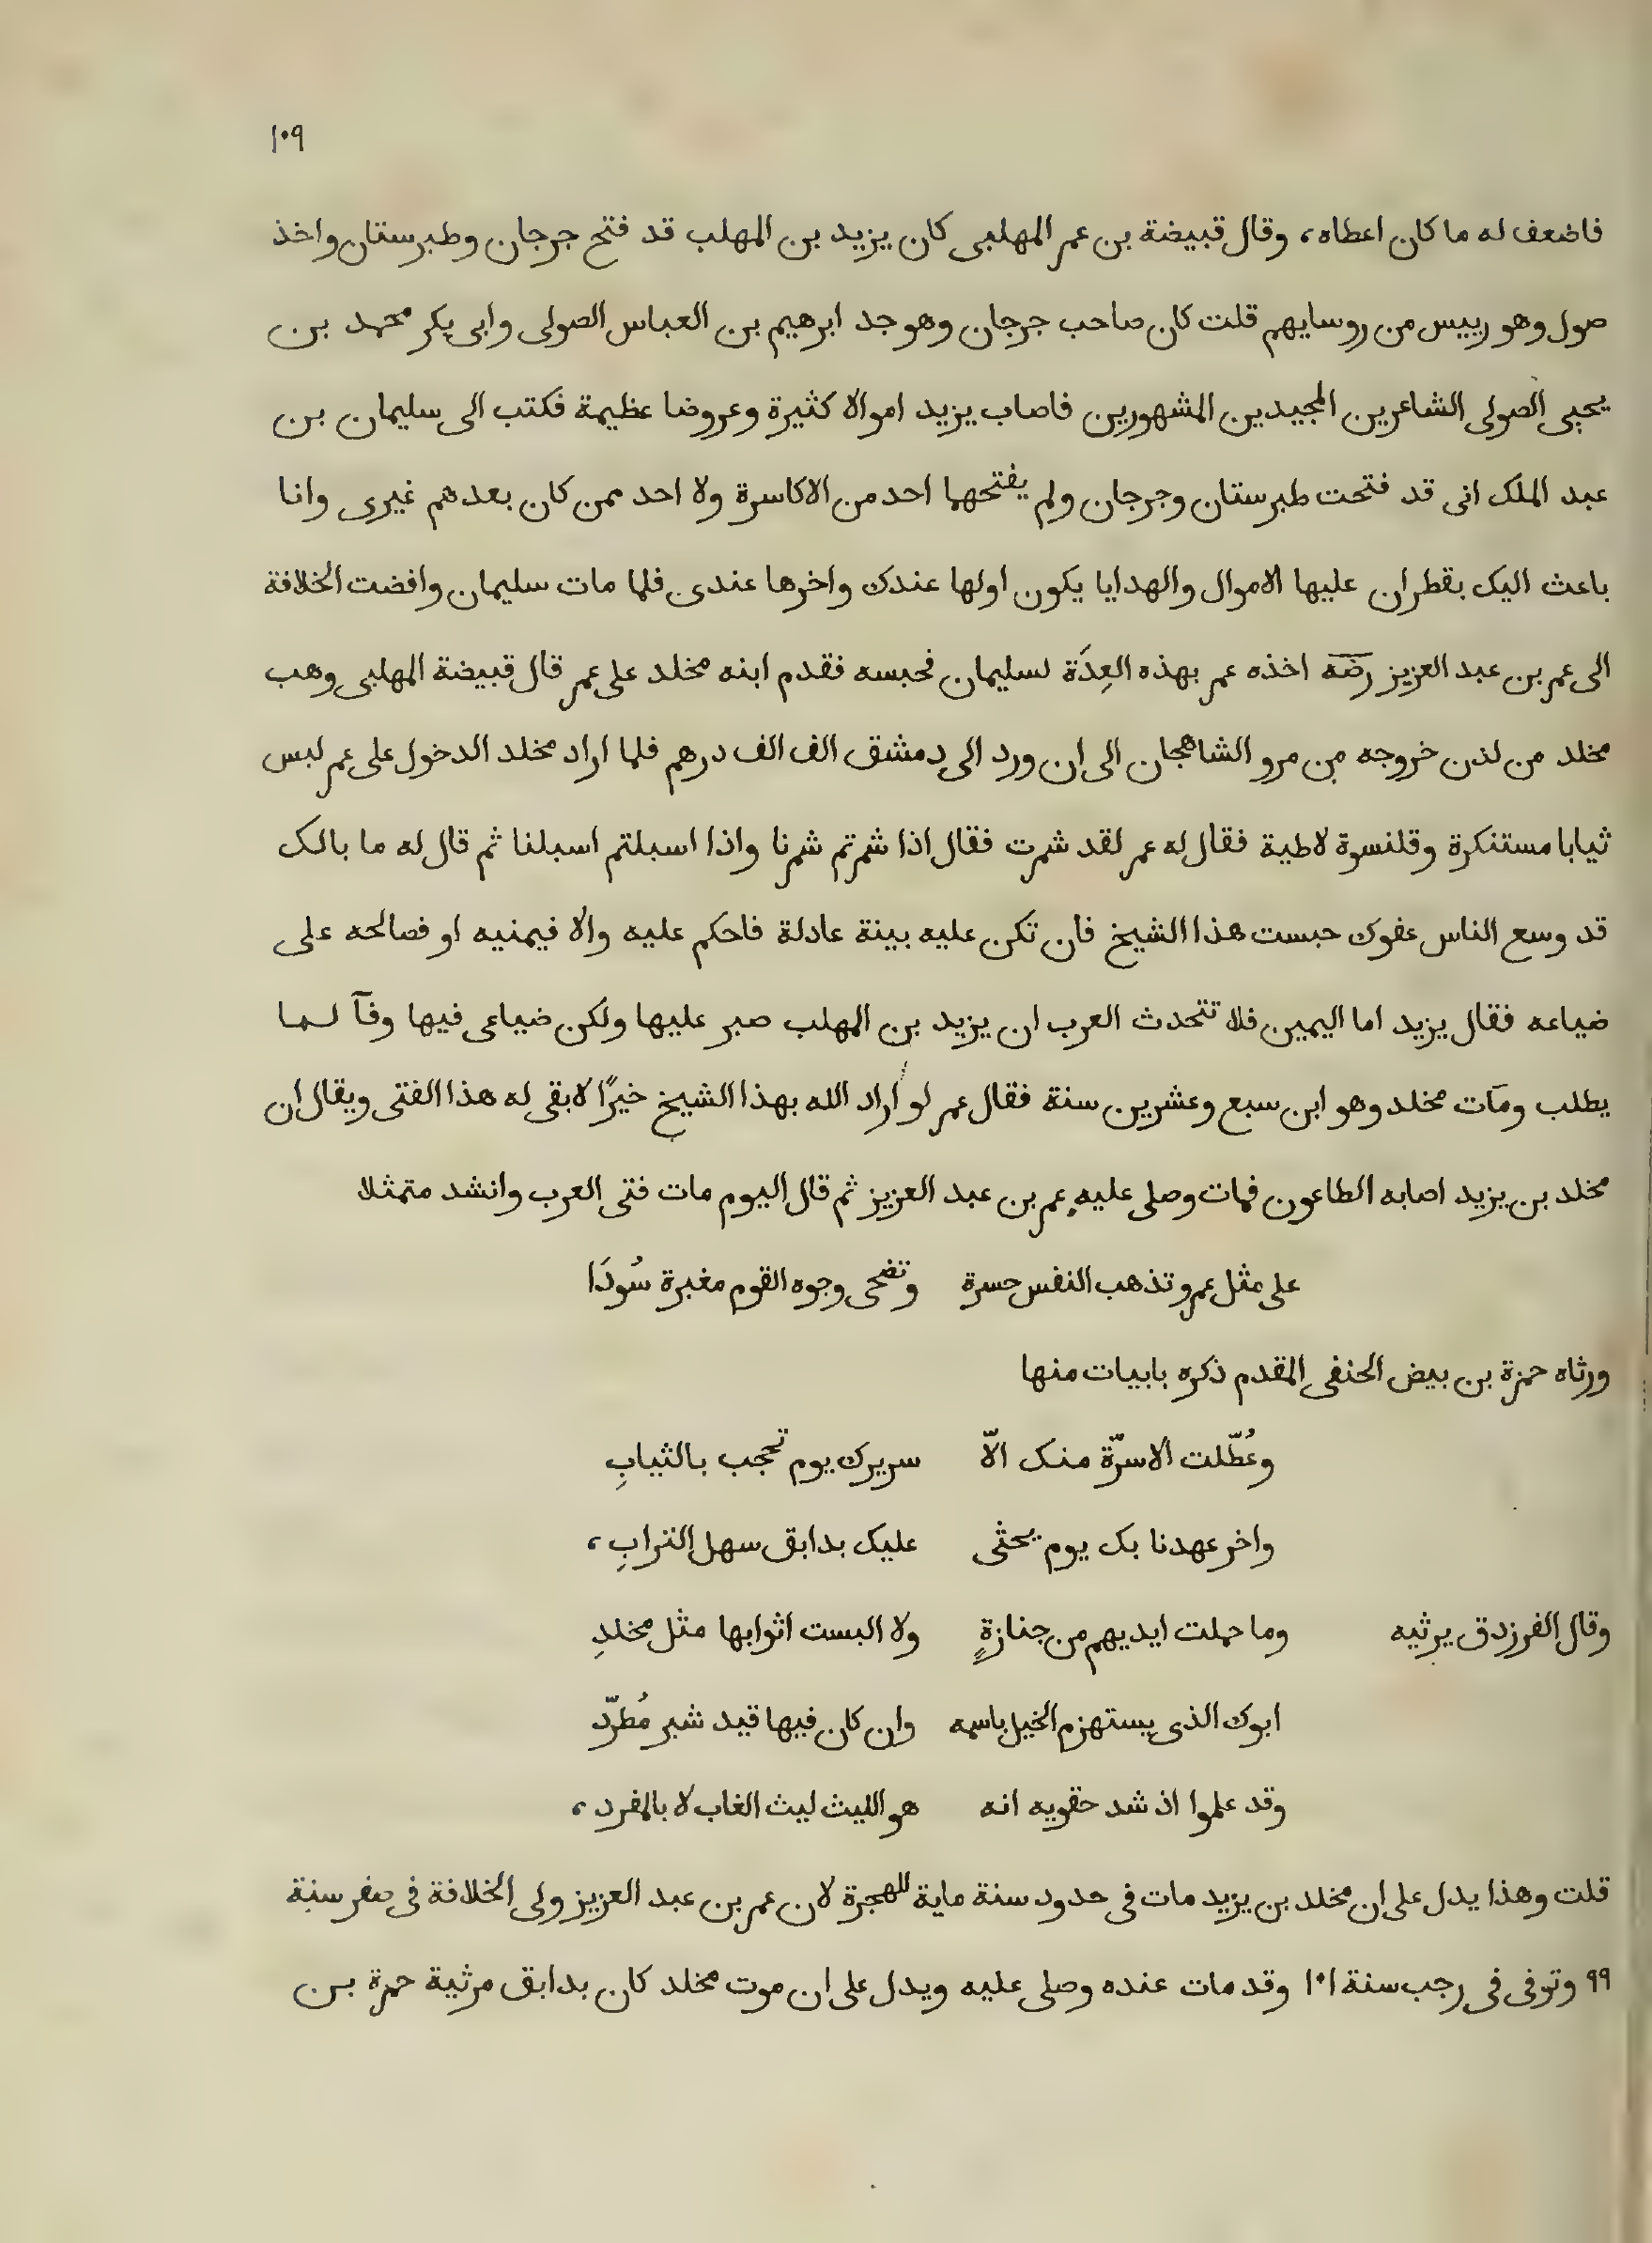 ١٠٩
فاضعف له ما كان اعطاه، وقال قبيضة بن عمر المهلبى كان يزيد بن المهلب قد فتح جرجان وطبرستان واخذ
صول وهو رييس من روسايهم قلت كان صاحب جرجان وهو جد ابرهيم بن العباس الصولى وابى بكر محمد بن
يحيى الصولى الشاعرين المجيدين المشهورين فاصاب يزيد اموالا كثيرة وعروضا عظيمة فكتب الى سليمان بن
عبد الملك انى قد فتحت طبرستان وجرجان ولم يفتحهما احد من الاكاسرة ولا احد ممن كان بعدهم غيرى وانا
باعث اليك بقطران عليها الاموال والهدايا يكون اولها عندك واخرها عندى فلما مات سليمان وافضت الخلافة
الى عمر بن عبد العزيز رضه اخذه عمر بهذه العِدَة لسليمان فحبسه فقدم ابنه مخلد على عمر قال قبيضة المهلبى وهب
مخلد من لدن خروجه من مرو الشاهجان الى ان ورد الى دمشق الف الف درهم فلما اراد مخلد الدخول على عمر لبس
ثيابا مستنكرة وقلنسوة لاطية فقال له عمر لقد شمرت فقال اذا شمرتم شمرنا واذا اسبلتم اسبلنا ثم قال له ما بالك
قد وسع الناس عفوك حبست هذا الشيخ فان تكن عليه بينة عادلة فاحكم عليه والا فيمنيه او فصالحه على
ضياعه فقال يزيد اما اليمين فلا تتحدث العرب ان يزيد بن المهلب صبر عليها ولكن ضياعى فيها وفآ لما
يطلب ومات مخلد وهو ابن سبع وعشرين سنة فقال عمر لو اراد الله بهذا الشيخ خيرًا لابقى له هذا الفتى ويقال ان
مخلد بن يزيد اصابه الطاعون فمات وصلى عليه عمر بن عبد العزيز ثم قال اليوم مات فتى العرب وانشد متمثلا
على مثل عمرو تذهب النفس حسرة وتضحى وجوه القوم مغبرة سُودَا
ورثاه حمزة بن بيض الحنفى المقدم ذكره بابيات منها
وعُطّلت الاسرّة منك الاّ سريرك يوم تحجب بالثيابِ
واخر عهدنا بك يوم يحثى عليك بدابق سهل الترابِ،
وقال الفرزدق يرثيه وما حملت ايديهم من جنازةٍ ولا البست اثوابها مثل مخلدِ
ابوك الذى يستهزم الخيل باسمه وان كان فيها قيد شبر مُطرّد
وقد علموا اذ شد حقويه انه هو الليث ليث الغاب لا بالمفرد،
قلت وهذا يدل على ان مخلد بن يزيد مات فى حدود سنة ماية للهجرة لان عمر بن عبد العزيز ولى الخلافة فى صفر سنة
٩٩ وتوفى فى رجب سنة ١٠١ وقد مات عنده وصلى عليه ويدل على ان موت مخلد كان بدابق مرثية حمزة بن